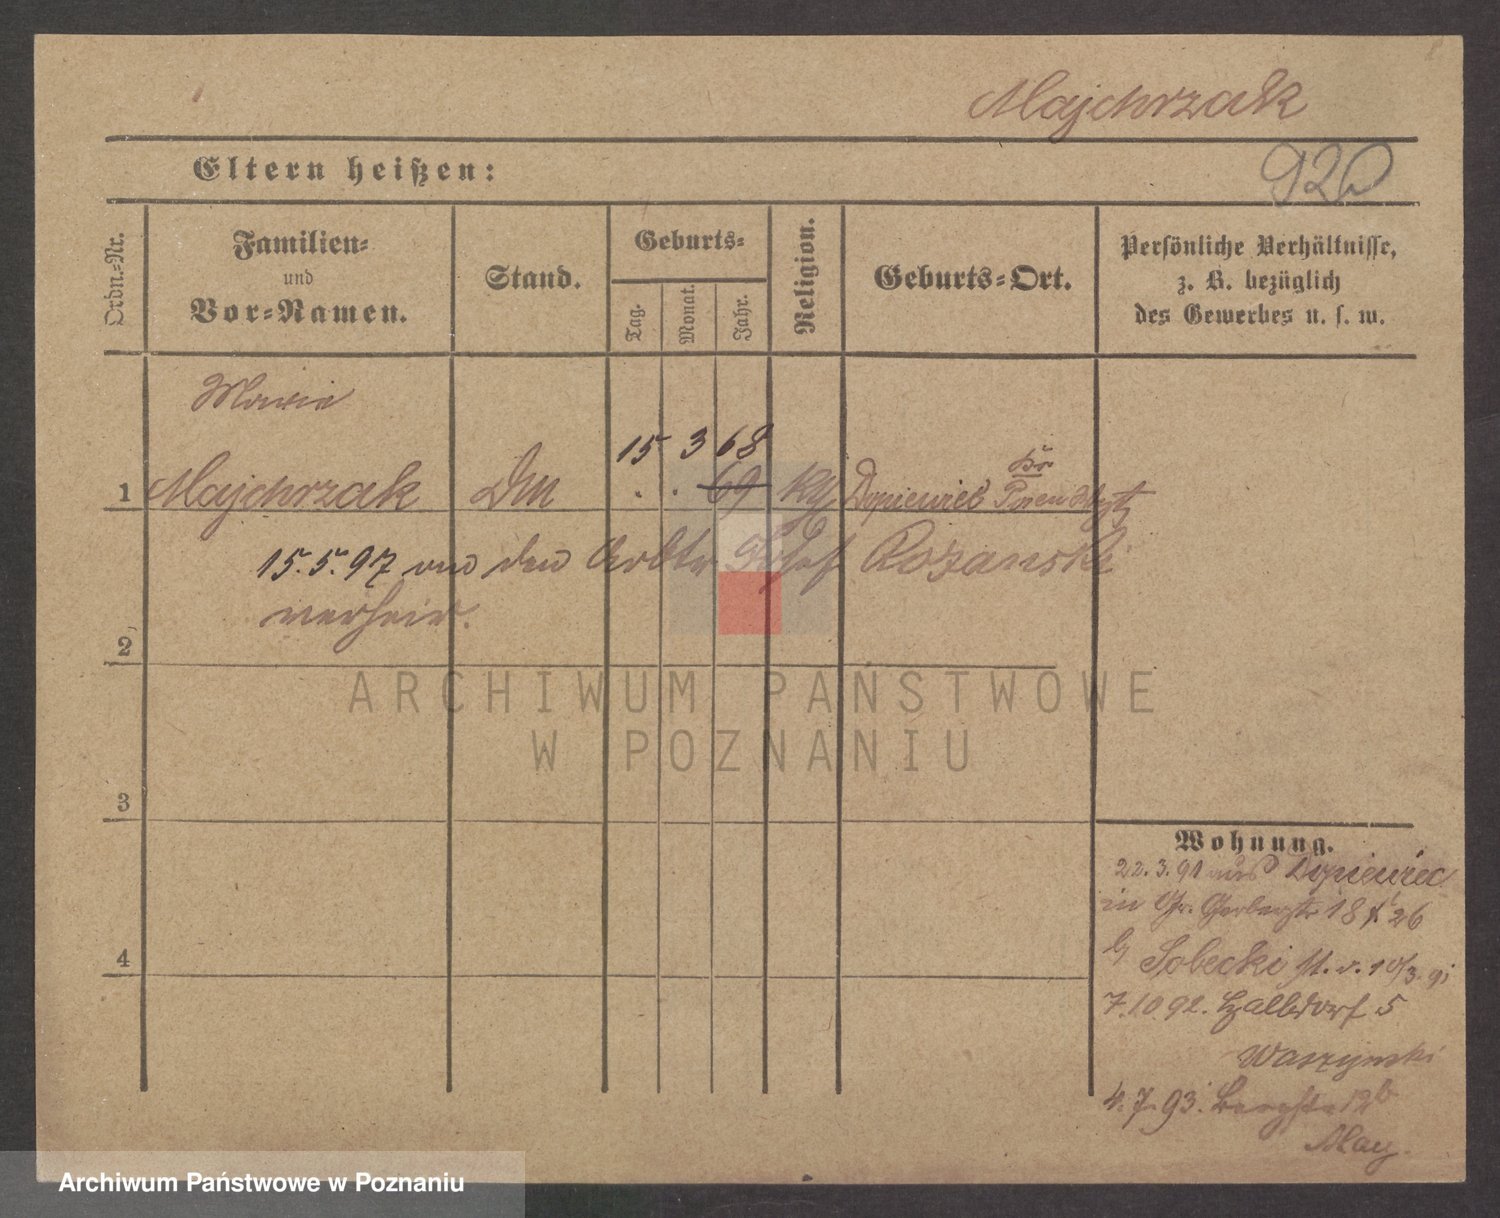 Majchrzak
920
Eltern heißen:
Ordn.-Nr.
Familien- und Vor-Namen.
Stand.
Geburts-
Tag.
Monat.
Jahr.
Religion.
Geburts-Ort.
Persönliche Verhältnisse,
z. B. bezüglich
des Gewerbes u. s. w.
Marie
15 3 68
1 Majchrzak DM . . 69 Kth Dopiewiec Posen
15.5.97 an den Arbtr Josef Rozanski
verheir.
2
3
4
Wohnung.
22.3.91 aus Dopiewiec
in Gr. Gerberstr 18 26
b/ Sobecki 10/3.91
7.10.92. Halbdorf 5
Waszynski
4.7.93. Bergstr 12b
May.
ARCHIWUM PAŃSTWOWE
W POZNANIU
Archiwum Państwowe w Poznaniu